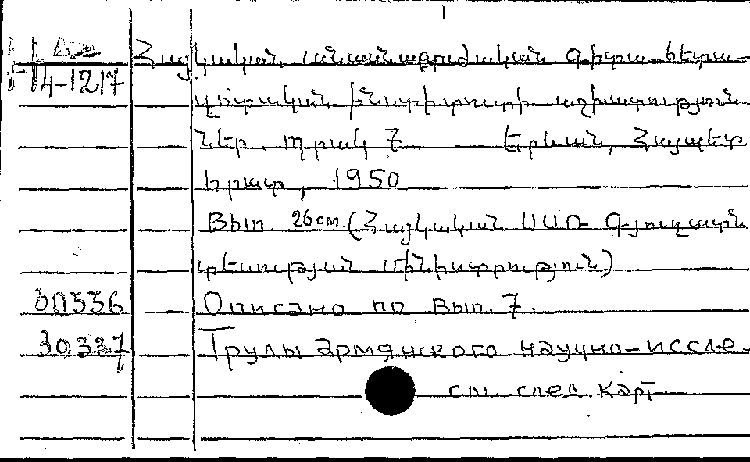 Հայկական անասնաբուժական գիտա-հետա-
14-1217
զոտական ինստիտուտի աշխատություն
ներ. պրակ 7. Երևան, Հայպետ
հրատ, 1950
Вып. 26 см (Հայկական ՍՍՌ Գյուղատն
տեսության մինիստրություն)
30336 Описано по Вып. 7.
30337 Труды армянского научно-иссле-
см. след. карт